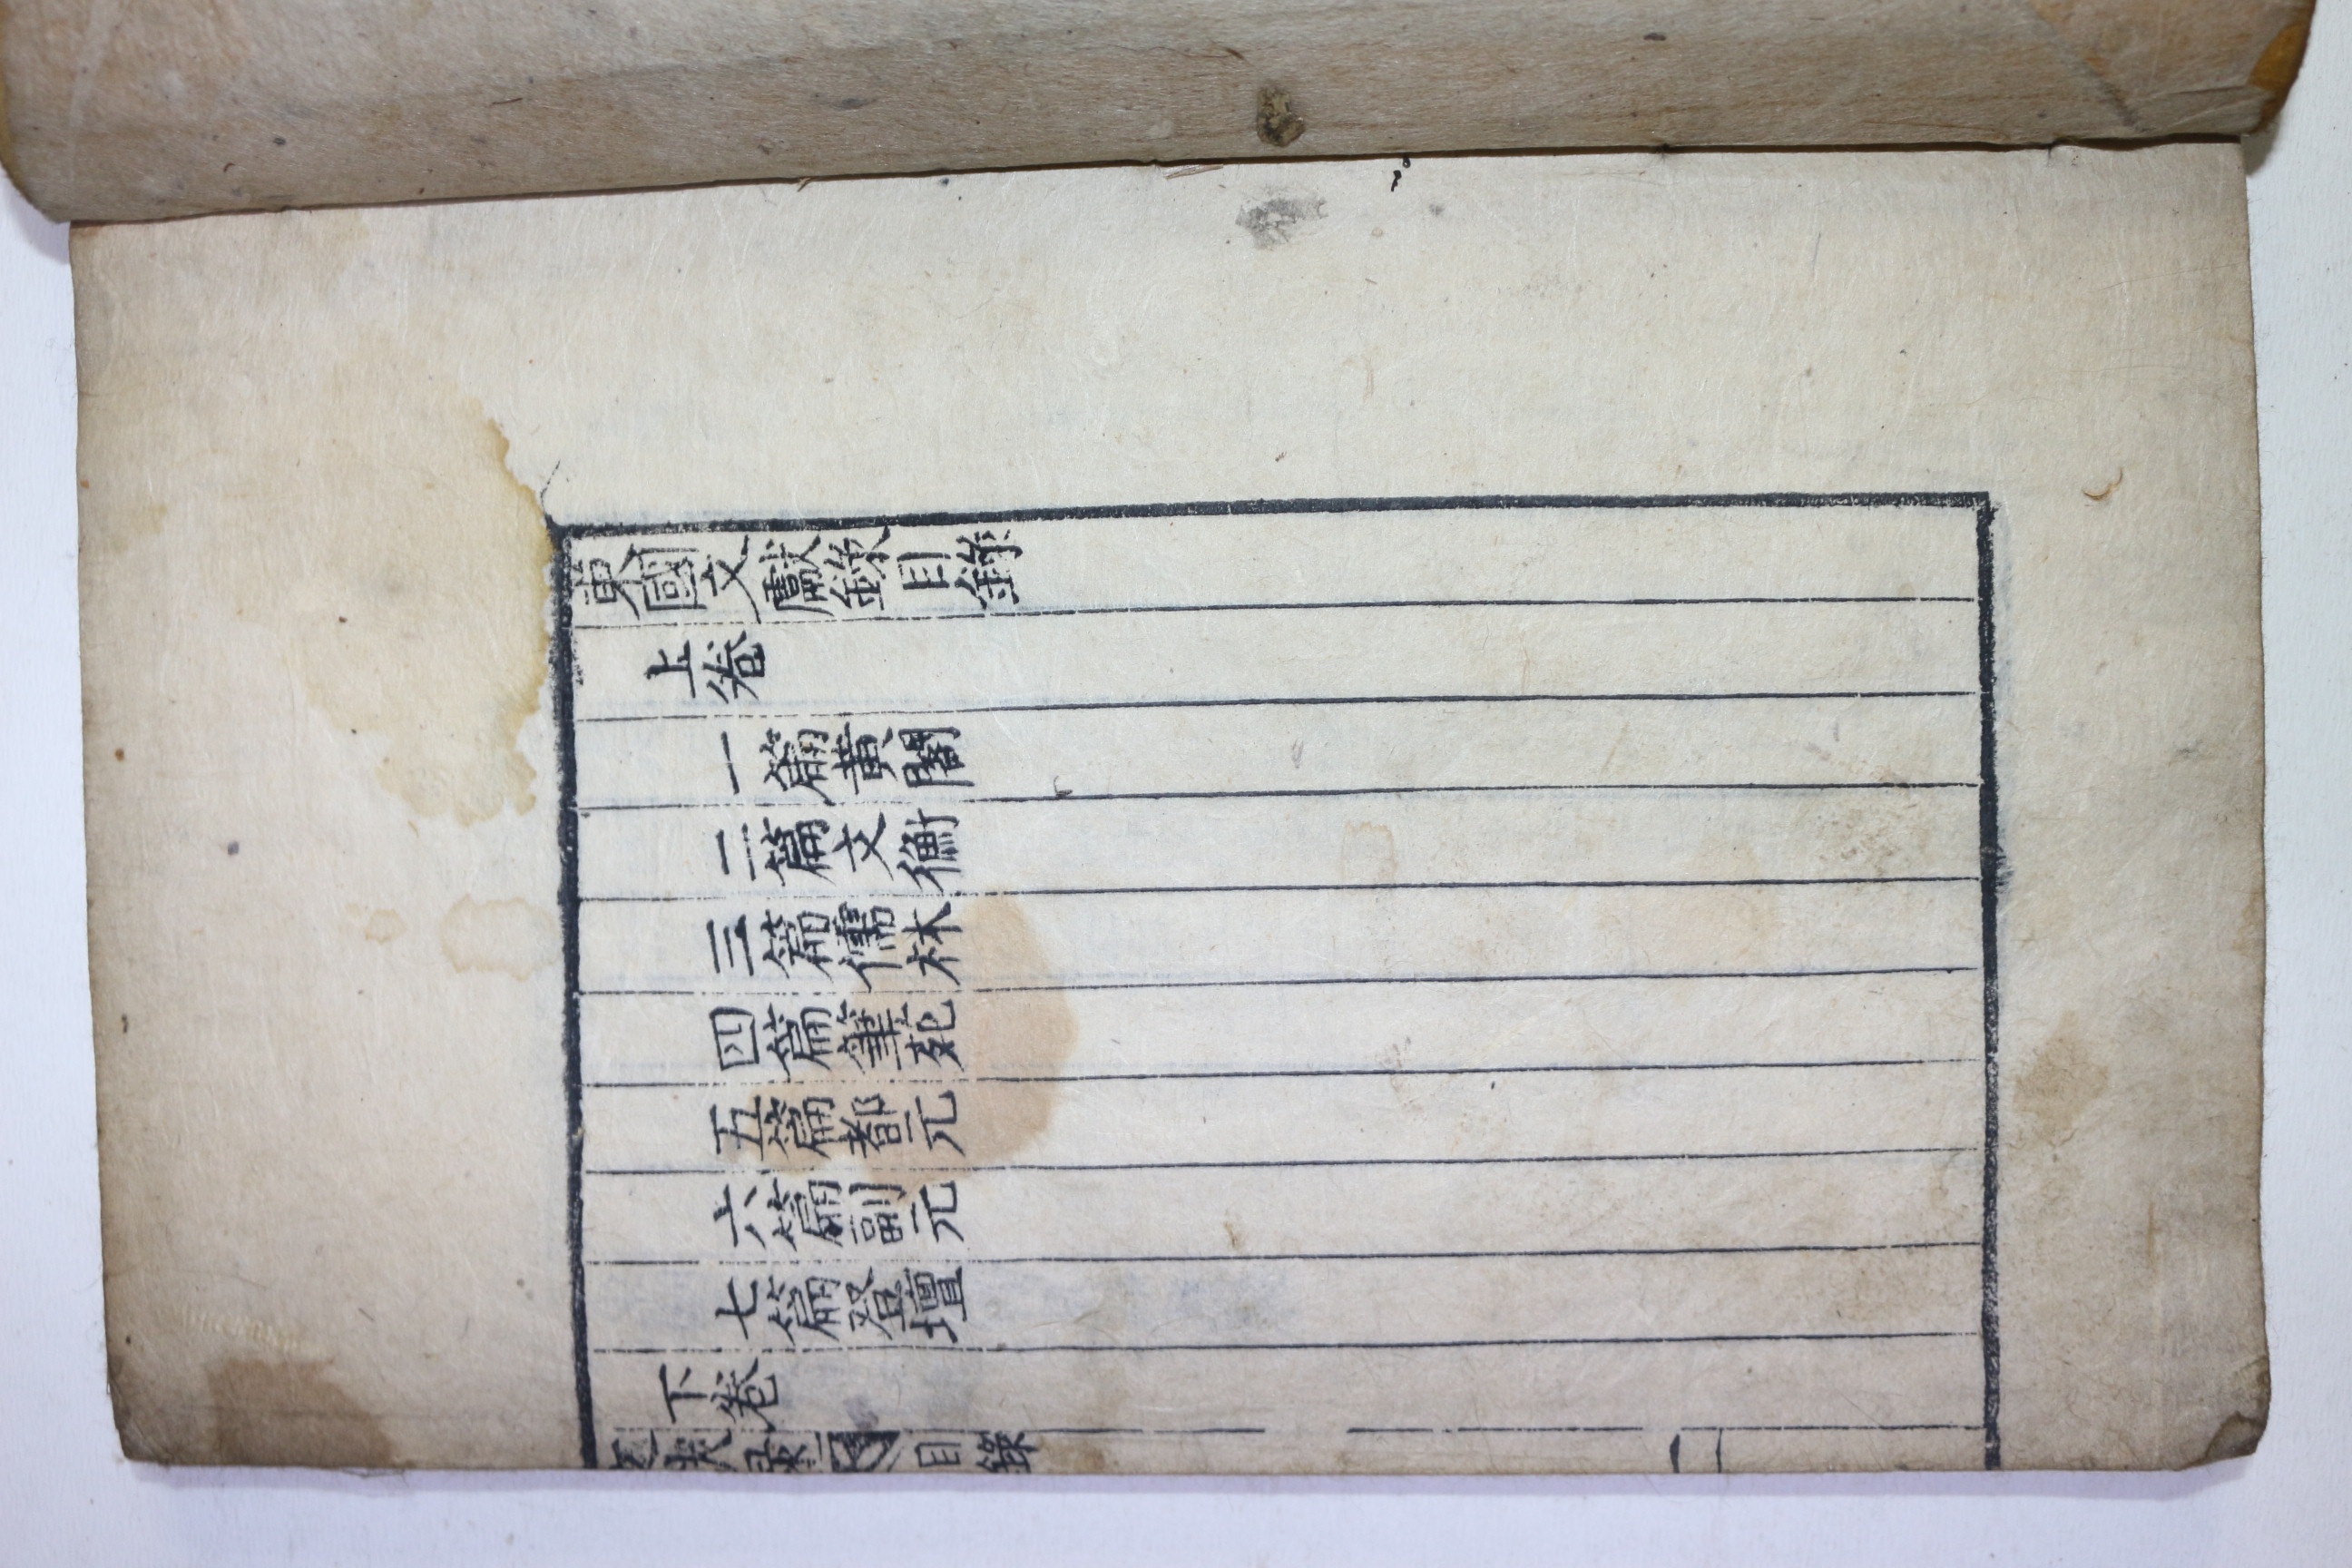 東國文獻錄目錄
上卷
一篇黃閣
二篇文衡
三篇儒林
四篇筆苑
五篇都元
六篇副元
七篇登壇
下卷
文獻錄 目錄 一